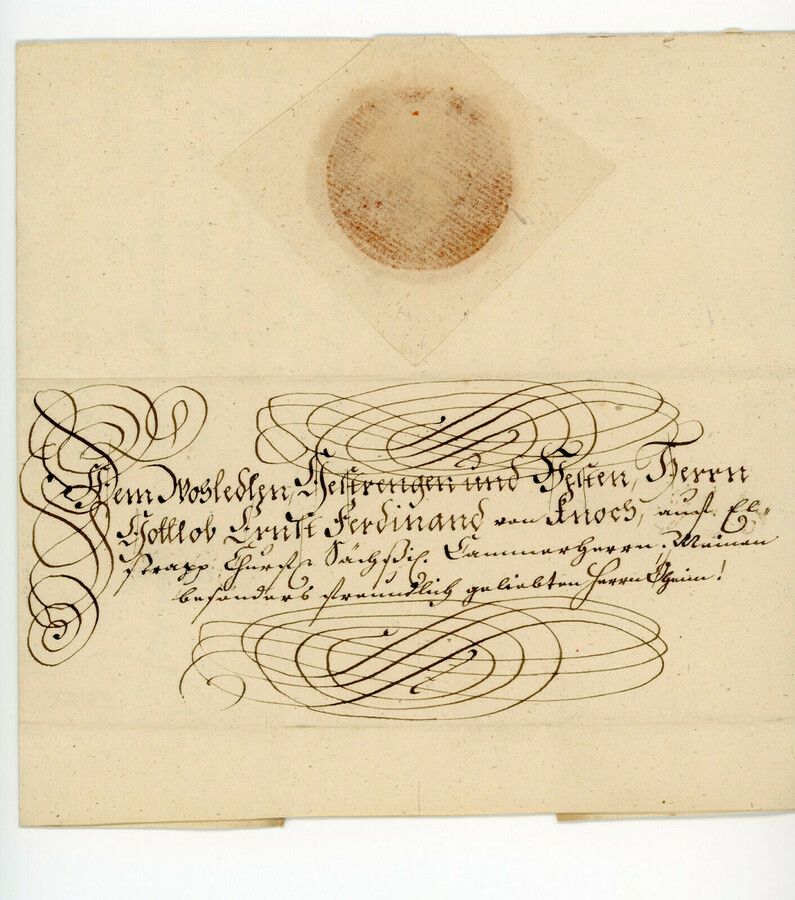 Dem WohlEdlen, Gestrengen und Vesten, Herrn
Gottlob Ernst Ferdinand von Knoch, auf El-
strapp. Churfl. Sächßisch. Cammerherrn. Meinen
besonders freundlich geliebten Herrn Oheim!